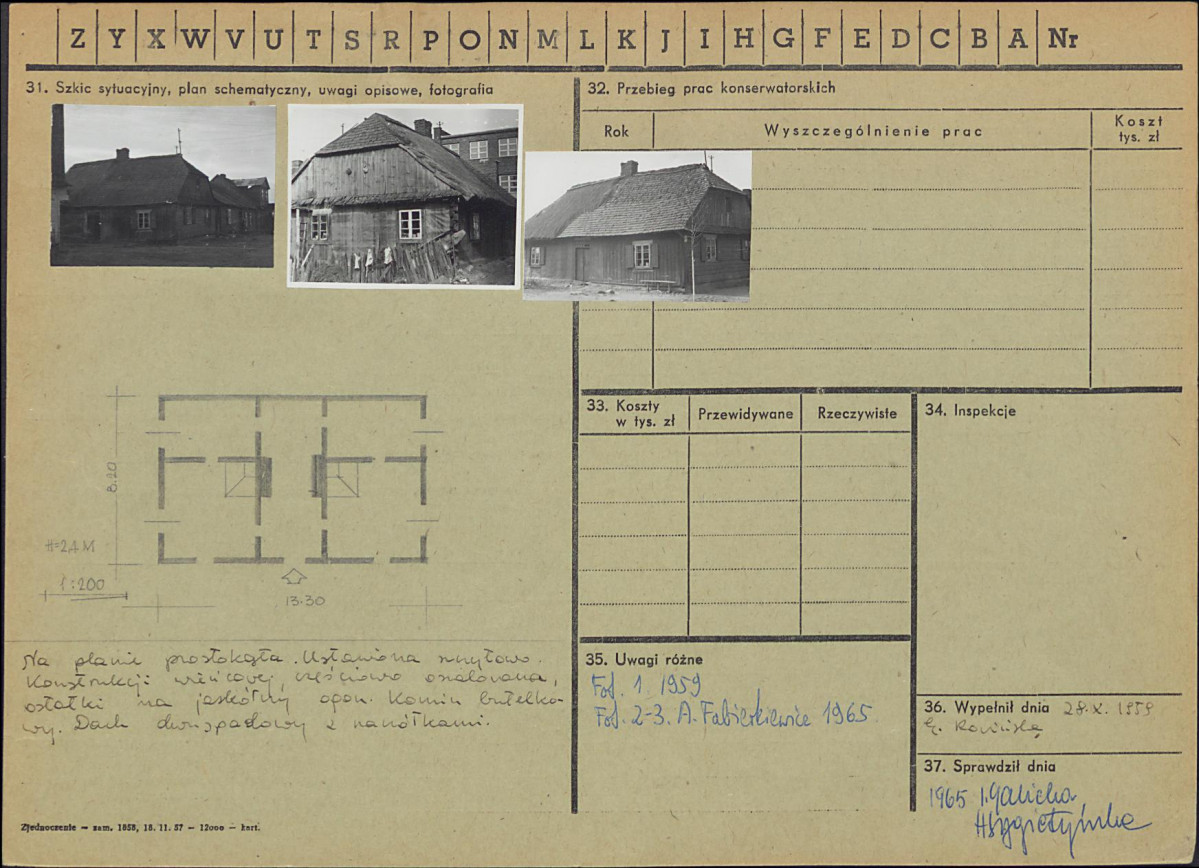 Z Y X W V U T S R P O N M L K J I H G F E D C B A Nr
31. Szkic sytuacyjny, plan schematyczny, uwagi opisowe, fotografia
32. Przebieg prac konserwatorskich
Rok
Wyszczególnienie prac
Koszt
tys. zł
8.20
H=2,4 M
1:200
13.30
Na planie prostokąta. Ustawiona szczytowo.
Konstrukcji wieńcowej, częściowo oszalowana,
ostatki na jaskółczy ogon. Komin butelko-
wy. Dach dwuspadowy z naczółkami.
33. Koszty
w tys. zł
Przewidywane
Rzeczywiste
34. Inspekcje
35. Uwagi różne
Fot. 1. 1959
Fot. 2-3. A. Fabierkiewicz 1965.
36. Wypełnił dnia 28.X. 1959
37. Sprawdził dnia
1965 I. Galicka,
H Sygietyńska
Zjednoczenie — zam. 1858, 18. 11. 57 — 12000 — kart.